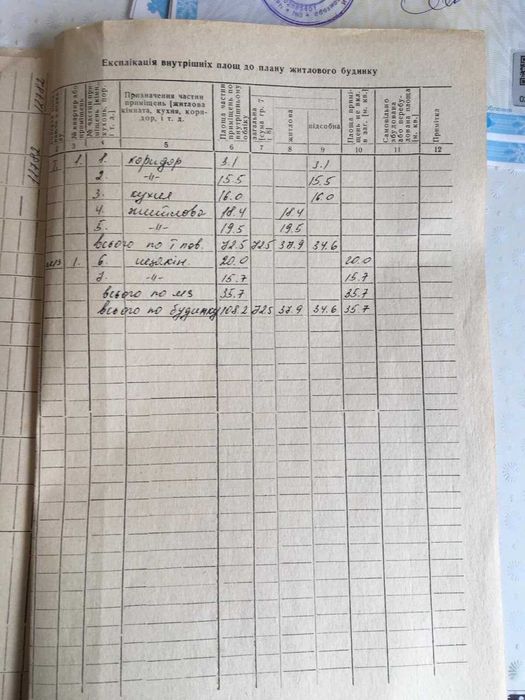 Експлікація внутрішніх площ до плану житлового будинку
Призначення частин приміщень [житлова кімната, кухня, коридор, і т. д.
Площа частин приміщень по внутрішньому обміру
загальна [сума гр. 7 і 8]
житлова
підсобна
Площа приміщень не вкл. в заг. [м. кв.]
Самовільно збудована або перебудована площа [м. кв.]
Примітка
4 5 6 7 8 9 10 11 12
1. 1. коридор 3.1 3.1
2 -"- 15.5 15.5
3. кухня 16.0 16.0
4. житлова 18.4 18.4
5. -"- 19.5 19.5
всього по I пов. 72.5 72.5 37.9 34.6
1. 6. 20.0 20.0
7. -"- 15.7 15.7
всього по мз 35.7 35.7
всього по будинку 108.2 72.5 37.9 34.6 35.7